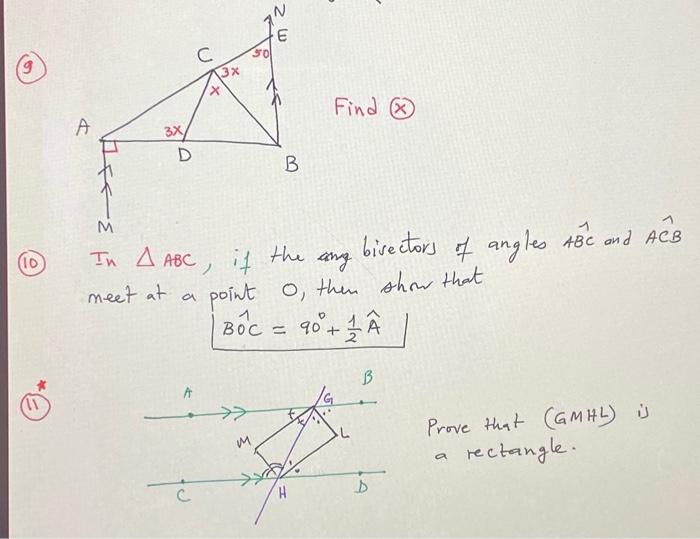 N
E
9
C
50
3x
x
Find x
A
3x
D
B
M
10
In △ ABC, if the ang bisectors of angles AB̂C and AĈB
meet at a point O, then show that
BÔC = 90° + 1/2 Â
11 *
A
B
G
x x
M
L
Prove that (GMHL) is
a rectangle.
C
H
D